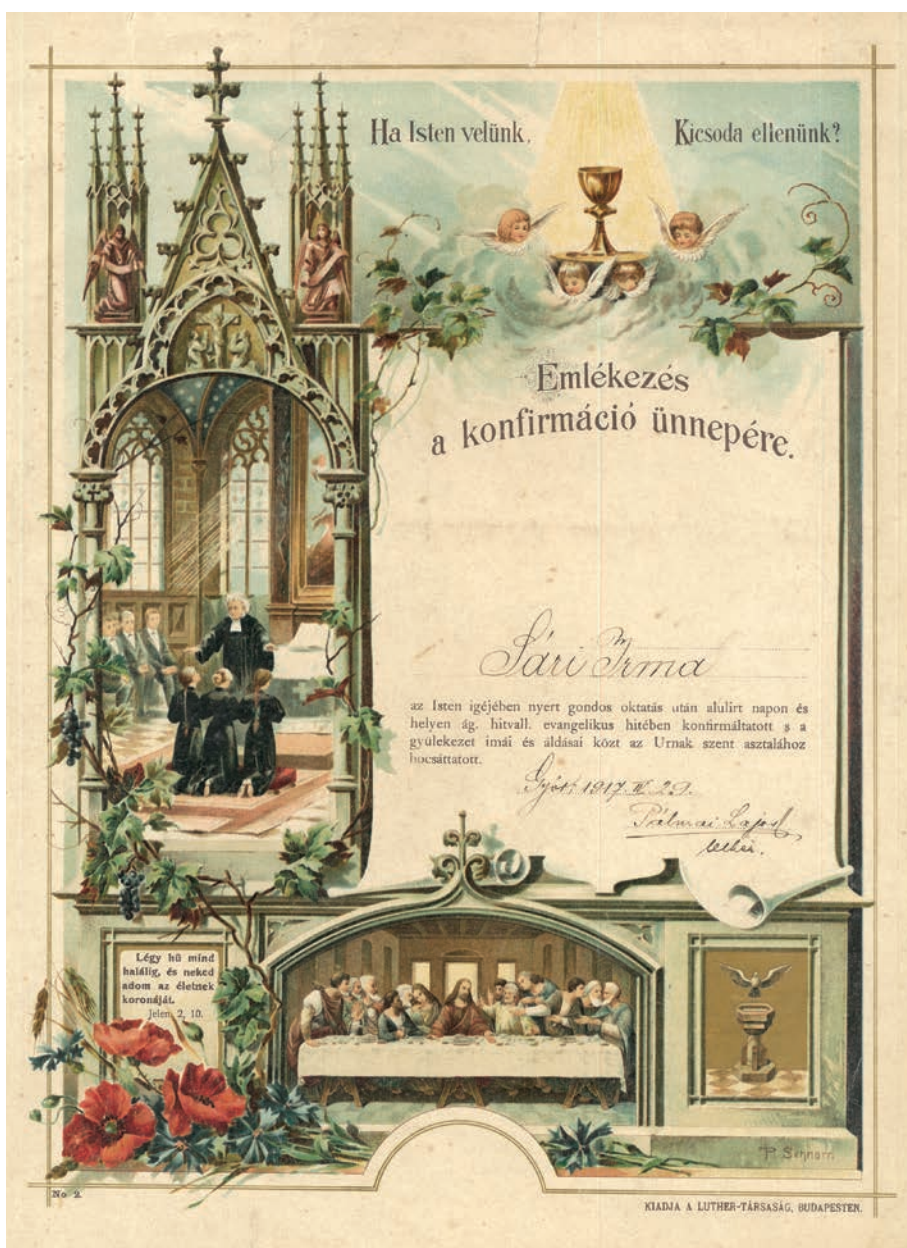 Ha Isten velünk, Kicsoda ellenünk?
Emlékezés
a konfirmáció ünnepére.
Sári Irma
az Isten igéjében nyert gondos oktatás után alulirt napon és
helyen ág. hitvall. evangelikus hitében konfirmáltatott s a
gyülekezet imái és áldásai közt az Urnak szent asztalához
bocsáttatott.
Győr, 1917. IV. 29.
Pálmai Lajos
lelkész.
Légy hű mind
halálig, és neked
adom az életnek
koronáját.
Jelen. 2, 10.
P. Schnorr
No 2.
KIADJA A LUTHER-TÁRSASÁG, BUDAPESTEN.